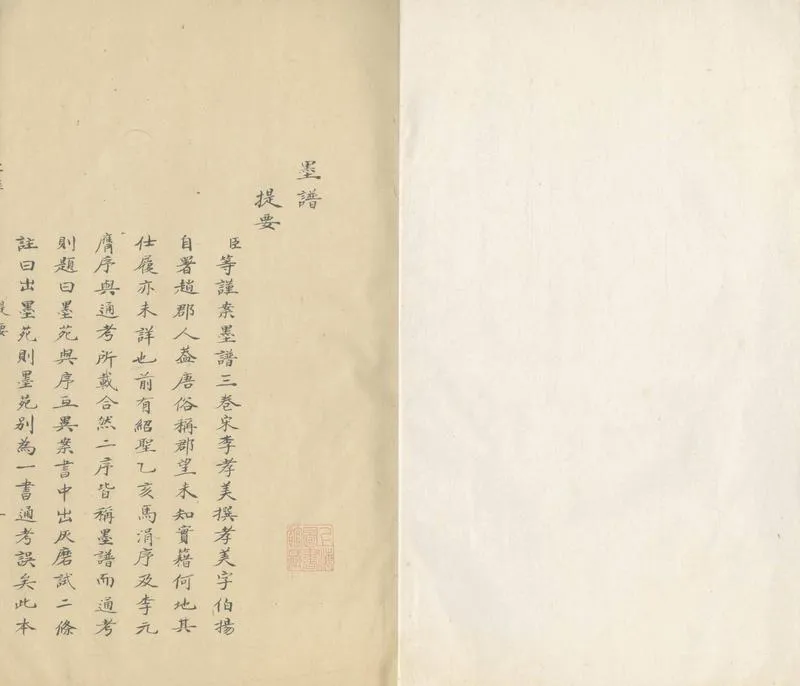 墨譜
提要
臣等謹案墨譜三卷宋李孝美撰孝美字伯揚
自署趙郡人葢唐俗稱郡望未知實籍何地其
仕履亦未詳也前有紹聖乙亥馬涓序及李元
膺序與通考所載合然二序皆稱墨譜而通考
則題曰墨苑與序互異案書中出灰磨試二條
註曰出墨苑則墨苑別為一書通考誤矣此本
提要